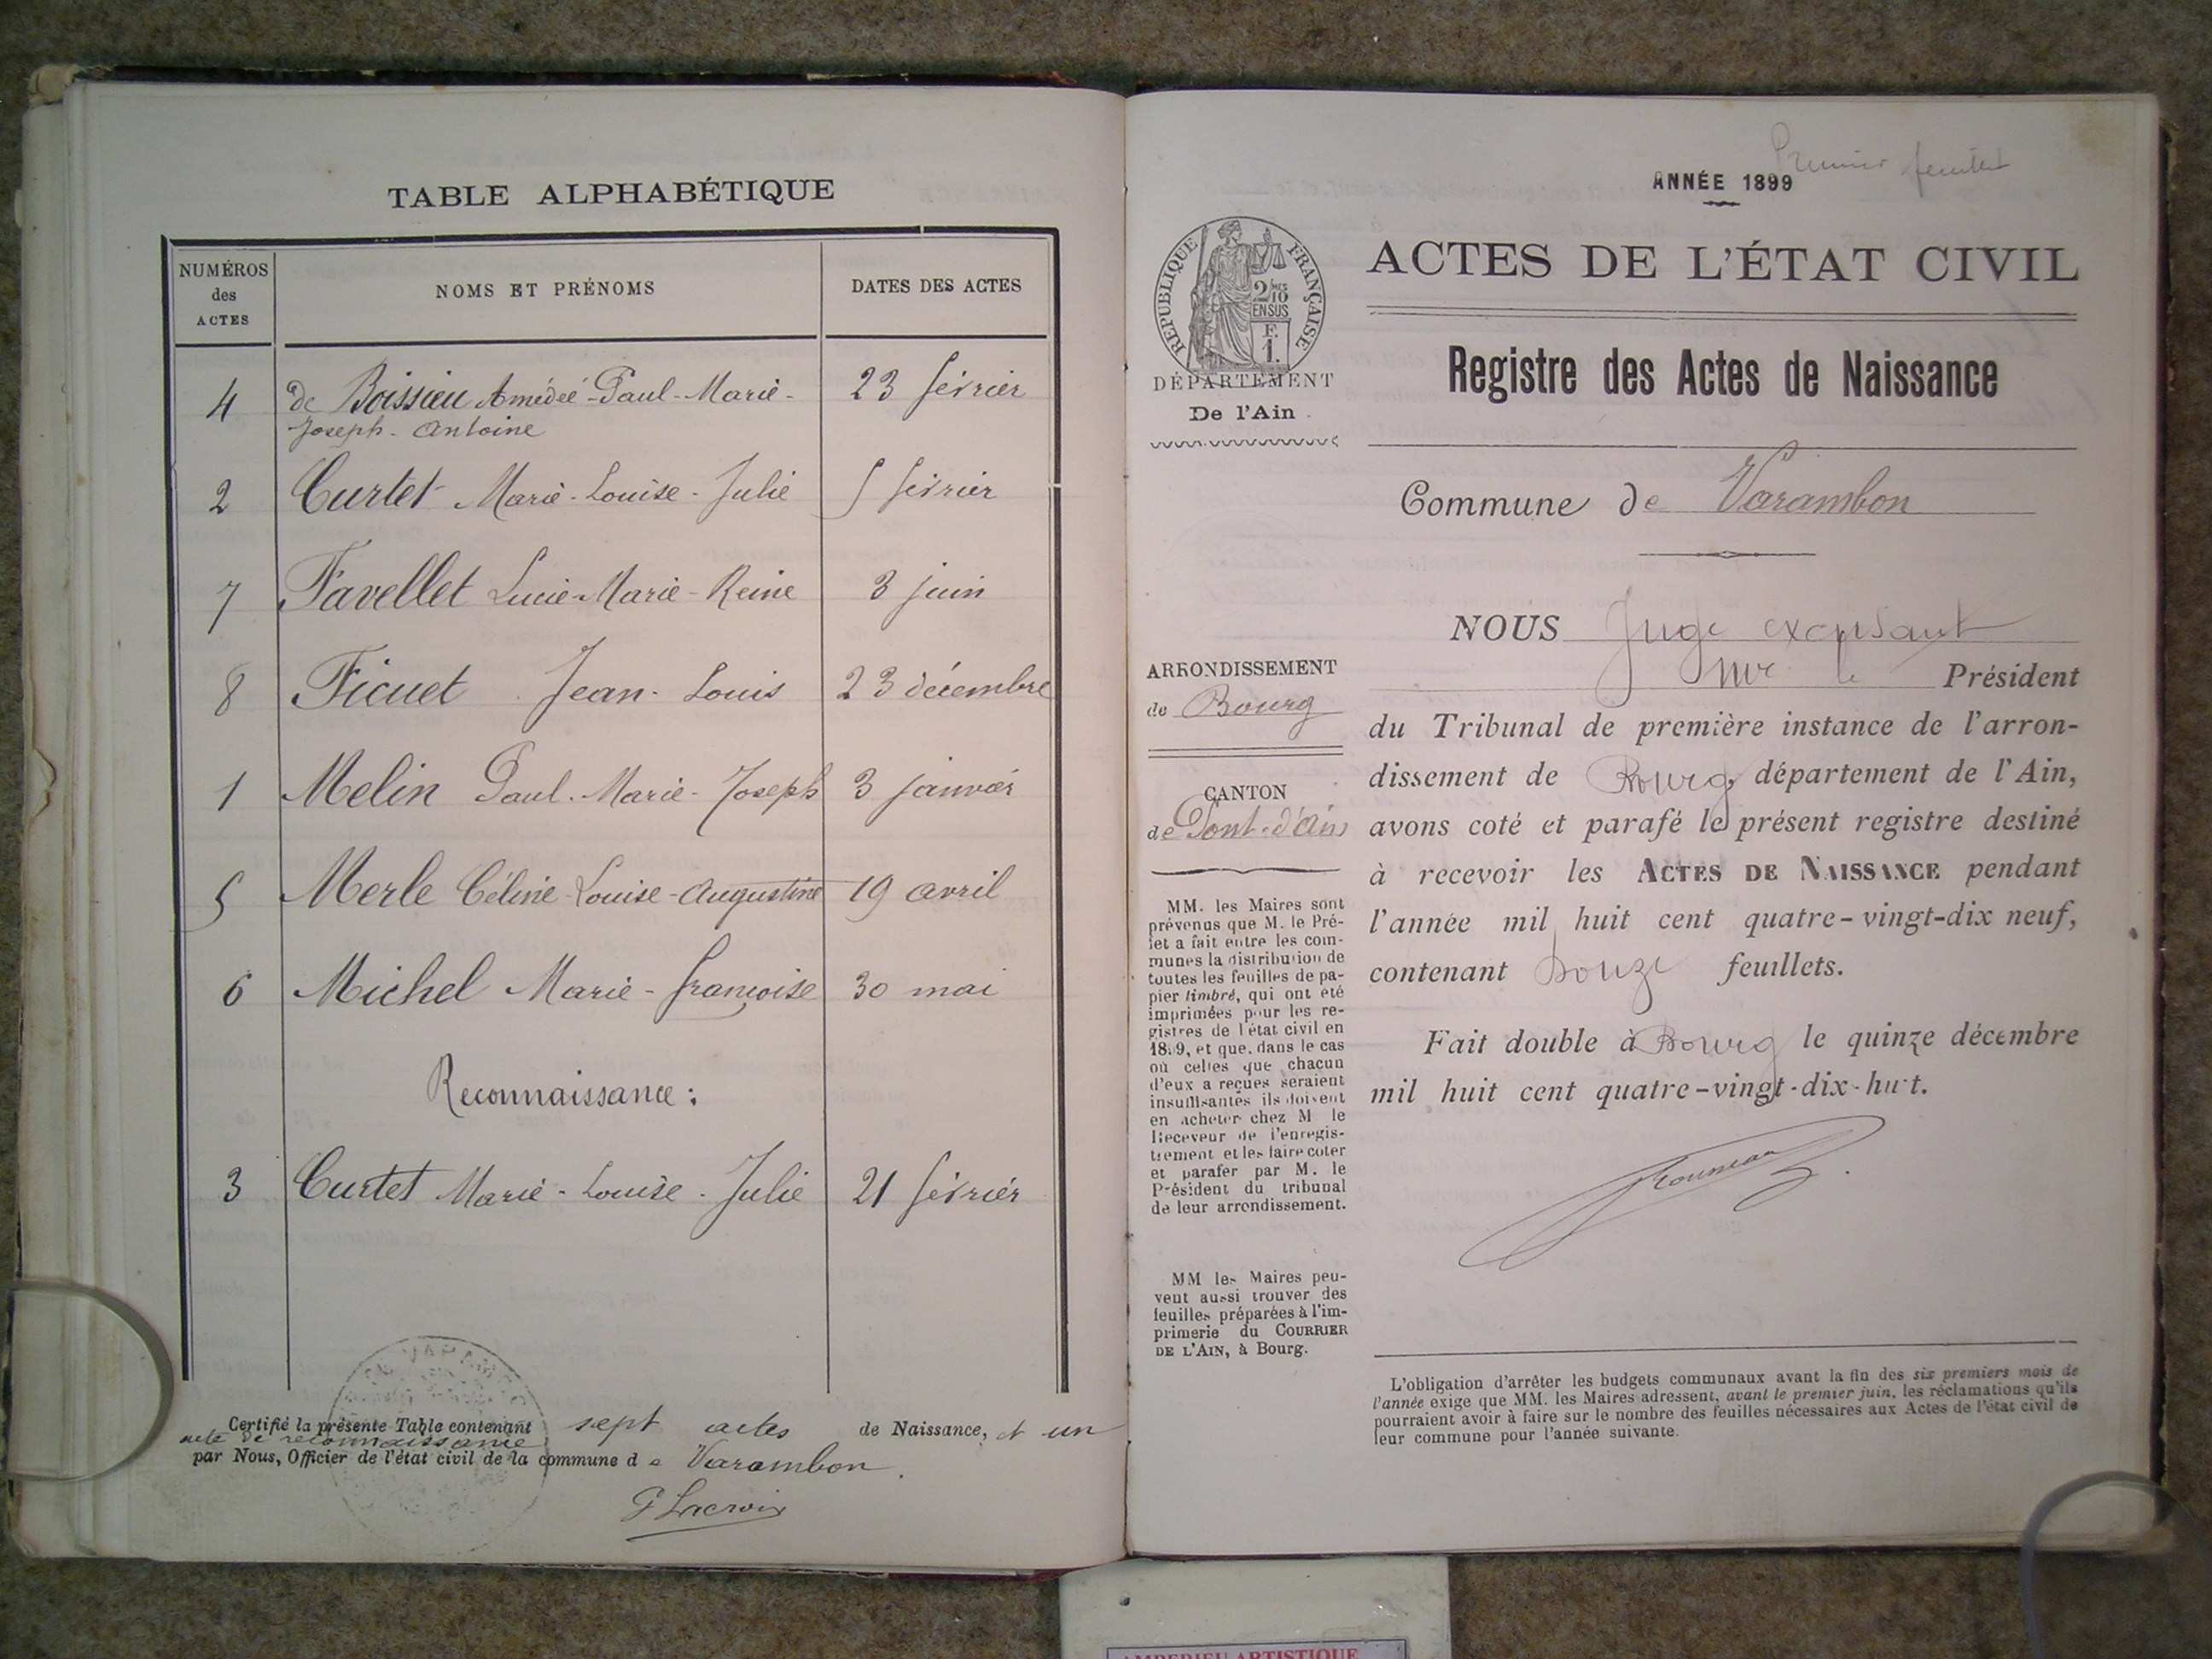 TABLE ALPHABÉTIQUE
NUMÉROS
des
ACTES
NOMS ET PRÉNOMS
DATES DES ACTES
4 de Boissieu Amédée-Paul-Marie- 23 février
Joseph-Antoine
2 Curtet Marie-Louise-Julie 5 février
7 Favellet Lucie-Marie-Reine 3 juin
8 Ficuet Jean-Louis 23 décembre
1 Melin Paul-Marie-Joseph 3 janvier
5 Merle Céline-Louise-Augustine 19 avril
6 Michel Marie-françoise 30 mai
Reconnaissance :
3 Curtet Marie-Louise-Julie 21 février
Certifié la présente Table contenant sept actes de Naissance, et un
acte de reconnaissance
par Nous, Officier de l'état civil de la commune de Varambon.
Lacroix
Premier feuillet
ANNÉE 1899
RÉPUBLIQUE FRANÇAISE
2/10
EN SUS
F.
1.
DÉPARTEMENT
De l'Ain
ACTES DE L'ÉTAT CIVIL
Registre des Actes de Naissance
Commune de Varambon
ARRONDISSEMENT
de Bourg
CANTON
de Pont-d'Ain
MM. les Maires sont
prévenus que M. le Pré-
fet a fait entre les com-
munes la distribution de
toutes les feuilles de pa-
pier timbré, qui ont été
imprimées pour les re-
gistres de l'état civil en
1899, et que, dans le cas
où celles que chacun
d'eux a reçues seraient
insuffisantes ils doivent
en acheter chez M. le
Receveur de l'enregis-
trement et les faire coter
et parafer par M. le
Président du tribunal
de leur arrondissement.
MM les Maires peu-
vent aussi trouver des
feuilles préparées à l'im-
primerie du COURRIER
DE L'AIN, à Bourg.
NOUS Juge
Mr le Président
du Tribunal de première instance de l'arron-
dissement de Bourg, département de l'Ain,
avons coté et parafé le présent registre destiné
à recevoir les ACTES DE NAISSANCE pendant
l'année mil huit cent quatre-vingt-dix neuf,
contenant Douze feuillets.
Fait double à Bourg le quinze décembre
mil huit cent quatre-vingt-dix-huit.
L'obligation d'arrêter les budgets communaux avant la fin des six premiers mois de
l'année exige que MM. les Maires adressent, avant le premier juin, les réclamations qu'ils
pourraient avoir à faire sur le nombre des feuilles nécessaires aux Actes de l'état civil de
leur commune pour l'année suivante.
AMBERIEU ARTISTIQUE